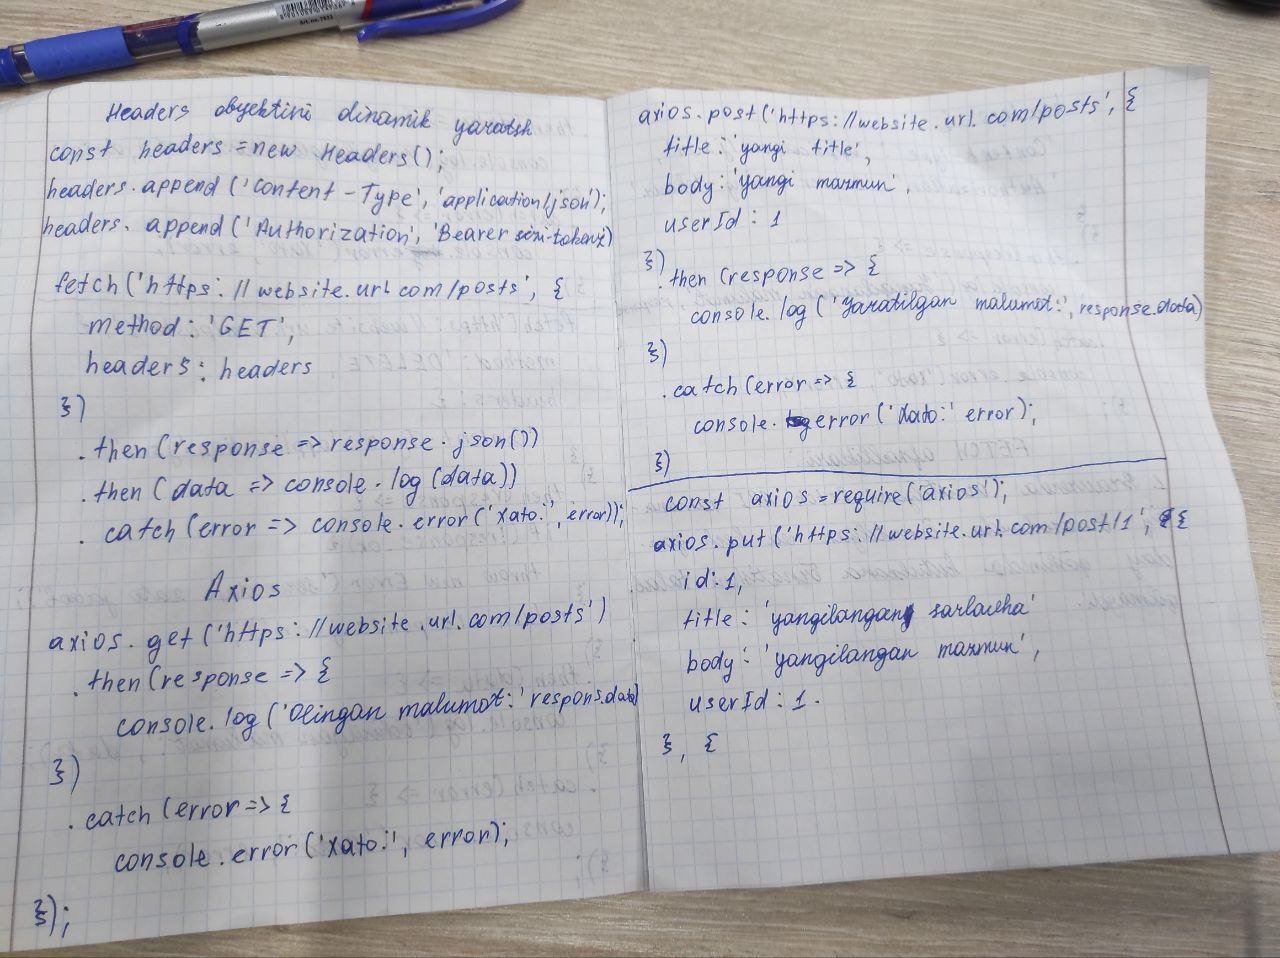 Headers obyektini dinamik yaratish
const headers = new Headers();
headers.append('Content-Type', 'application/json');
headers.append('Authorization', 'Bearer
fetch('https://website.url.com/posts', {
method: 'GET',
headers: headers
})
.then(response => response.json())
.then(data => console.log(data))
.catch(error => console.error('Xato:', error));
Axios
axios.get('https://website.url.com/posts')
.then(response => {
console.log('Olingan malumot:' respons.data)
})
.catch(error => {
console.error('Xato:', error);
});
axios.post('https://website.url.com/posts', {
title: 'yangi title',
body: 'yangi mazmun',
userId: 1
})
.then(response => {
console.log('Yaratilgan malumot:', response.data)
})
.catch(error => {
console.error('Xato:' error);
})
const axios = require('axios');
axios.put('https://website.url.com/post/1', {
id: 1,
title: 'yangilangan sarlavha'
body: 'yangilangan mazmun',
userId: 1.
}, {